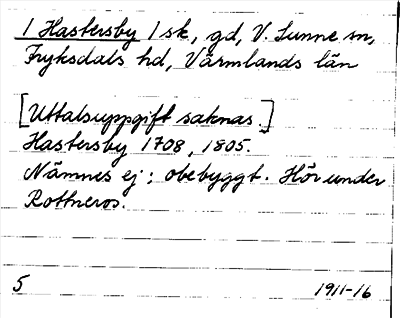 1 Hastersby 1 sk, gd, V. Sunne sn,
Fryksdals hd, Värmlands län
[Uttalsuppgift saknas.]
Hastersby 1708, 1805.
Nämnes ej; obebyggt. Hör under
Rottneros.
5 1911-16